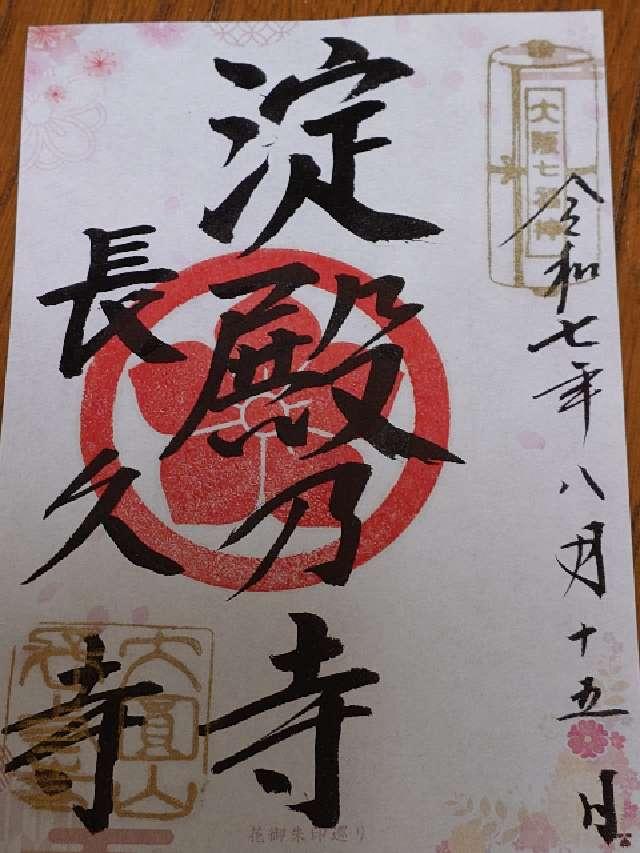 大阪七福神
令和七年八月十五日
淀殿乃寺
長久寺
大圓山
花御朱印巡り